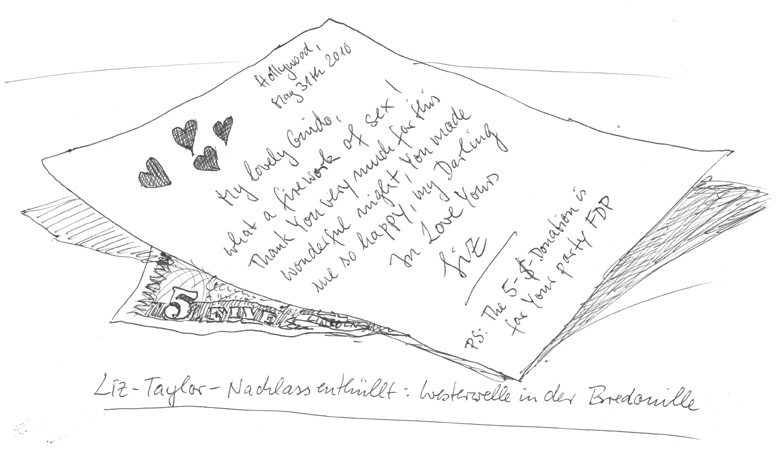 Hollywood,
May 31th 2010
My lovely Guido,
what a firework of sex!
Thank You very much for this
wonderful night, You made
me so happy, my Darling
In Love Yours
Liz
PS: The 5-$-Donation is
for Your party FDP
5 FIVE LINCOLN
Liz-Taylor-Nachlass enthüllt: Westerwelle in der Bredouille